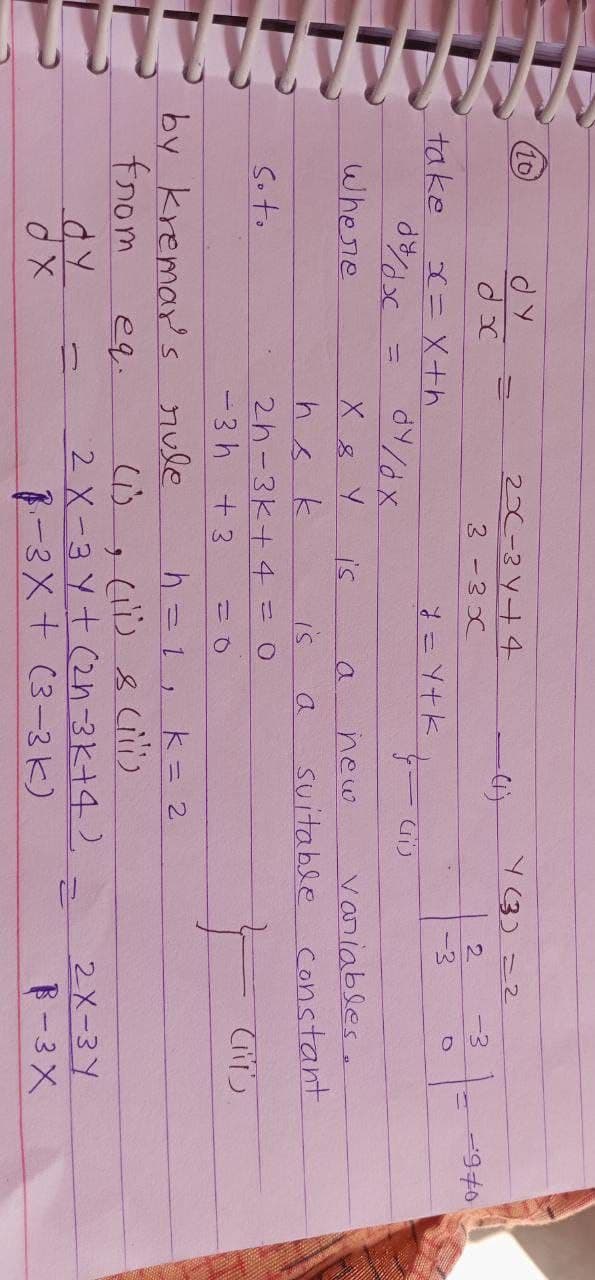 (10) dy/dx = (2x-3y+4)/(3-3x) —(i) y(3)=2
take x = X+h y = Y+k } —(ii) | 2 -3 | = -9≠0
dy/dx = dY/dX | -3 0 |
where X & Y is a new variables.
h & k is a suitable constant
s.t. 2h-3k+4=0
-3h +3 =0 } — (iii)
by kremar's rule h=1, k=2
from eq. (i), (ii) & (iii)
dY/dX = (2X-3Y+(2h-3k+4))/(-3X+(3-3k)) = (2X-3Y)/(-3X)